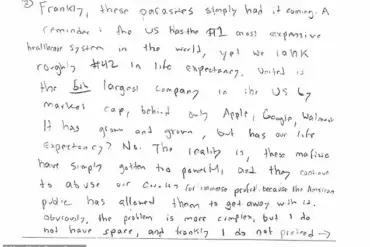 ② Frankly, these parasites simply had it coming. A
reminder: the US has the #1 most expensive
healthcare system in the world, yet we rank
roughly #42 in life expectancy. United is
the largest company in the US by
market cap, behind only Apple, Google, Walmart.
It has grown and grown, but has our life
expectancy? No. The reality is, these mafiosi
have simply gotten too powerful, and they continue
to abuse our country for immense profit because the American
public has allowed them to get away with it.
Obviously, the problem is more complex, but I do
not have space, and frankly I do not pretend →